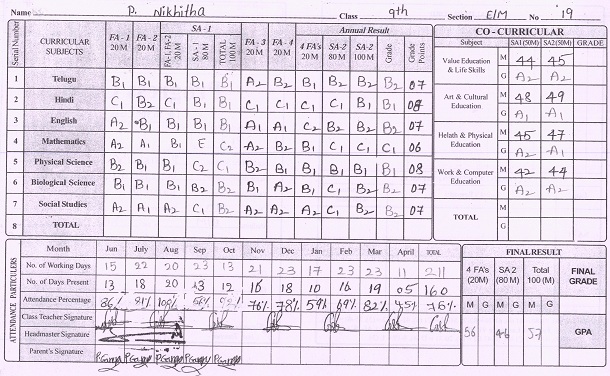 Name P. Nikhitha Class 9th Section E/M No 19
Serial Number CURRICULAR SUBJECTS FA-1 20 M FA-2 20 M SA-1 FA-1, FA-2 20 M SA-1 80 M TOTAL 100 M FA-3 20 M FA-4 20 M Annual Result 4 FA's 20 M SA-2 80 M SA-2 100 M Grade Grade Points
1 Telugu B1 B1 B1 B1 B1 A2 B2 B1 B2 B2 B2 07
2 Hindi C1 B2 C1 B1 B1 C1 C1 C1 C1 B1 B1 08
3 English A2 B1 B1 B1 B1 A1 A1 C2 B2 B2 B2 07
4 Mathematics A2 A1 B1 E C2 A2 B2 B1 C1 C1 C1 06
5 Physical Science B2 B1 B1 C2 C1 B2 B1 B1 B1 B1 B1 08
6 Biological Science B1 B1 B1 B2 B2 B1 A2 B1 C1 B2 B2 07
7 Social Studies A2 A1 A2 C1 B2 A2 A2 A2 C1 B2 B2 07
8 TOTAL
CO - CURRICULAR
Subject SA1 (50M) SA2 (50M) GRADE
Value Education & Life Skills M 44 45
G A2 A2
Art & Cultural Education M 48 49
G A1 A1
Helath & Physical Education M 45 47
G A2 A1
Work & Computer Education M 42 44
G A2 A2
TOTAL M
G
ATTENDANCE PARTICULERS
Month Jun July Aug Sep Oct Nov Dec Jan Feb Mar April TOTAL
No. of Working Days 15 22 20 23 13 21 23 17 23 23 11 211
No. of Days Present 13 18 20 13 12 16 18 10 16 19 05 160
Attendance Percentage 86% 76% 78% 59% 69% 82% 45% 76%
Class Teacher Signature
Headmaster Signature
Parent's Signature
FINAL RESULT
4 FA's (20M) SA 2 (80 M) Total 100 (M) FINAL GRADE
M G M G M G
56 46 57 GPA